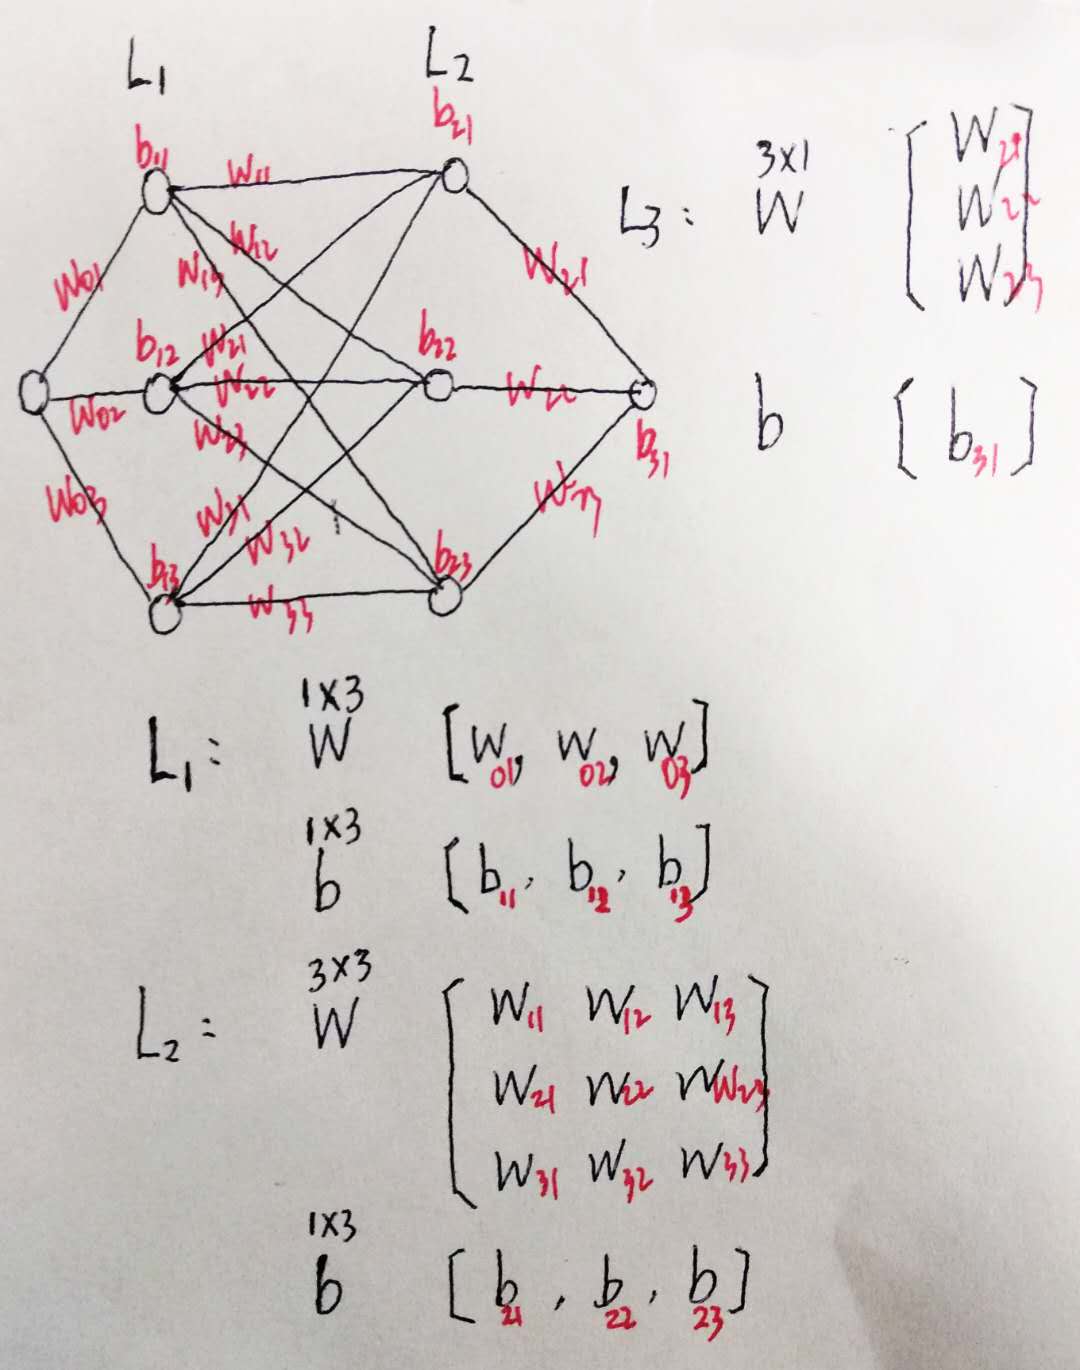 L1 L2
b11 b21
W11
W12
W13
W01
W21
b12 W21 b22
W22 W22
W02
W23
b31
W03 W31
W32
b13 b23
W33
3x1
L3: W [ W21
W22
W23 ]
b [ b31 ]
1x3
L1: W [W01, W02, W03]
1x3
b [b11, b12, b13]
3x3
L2: W [ W11 W12 W13
W21 W22 WW23
W31 W32 W33 ]
1x3
b [ b21, b22, b23 ]